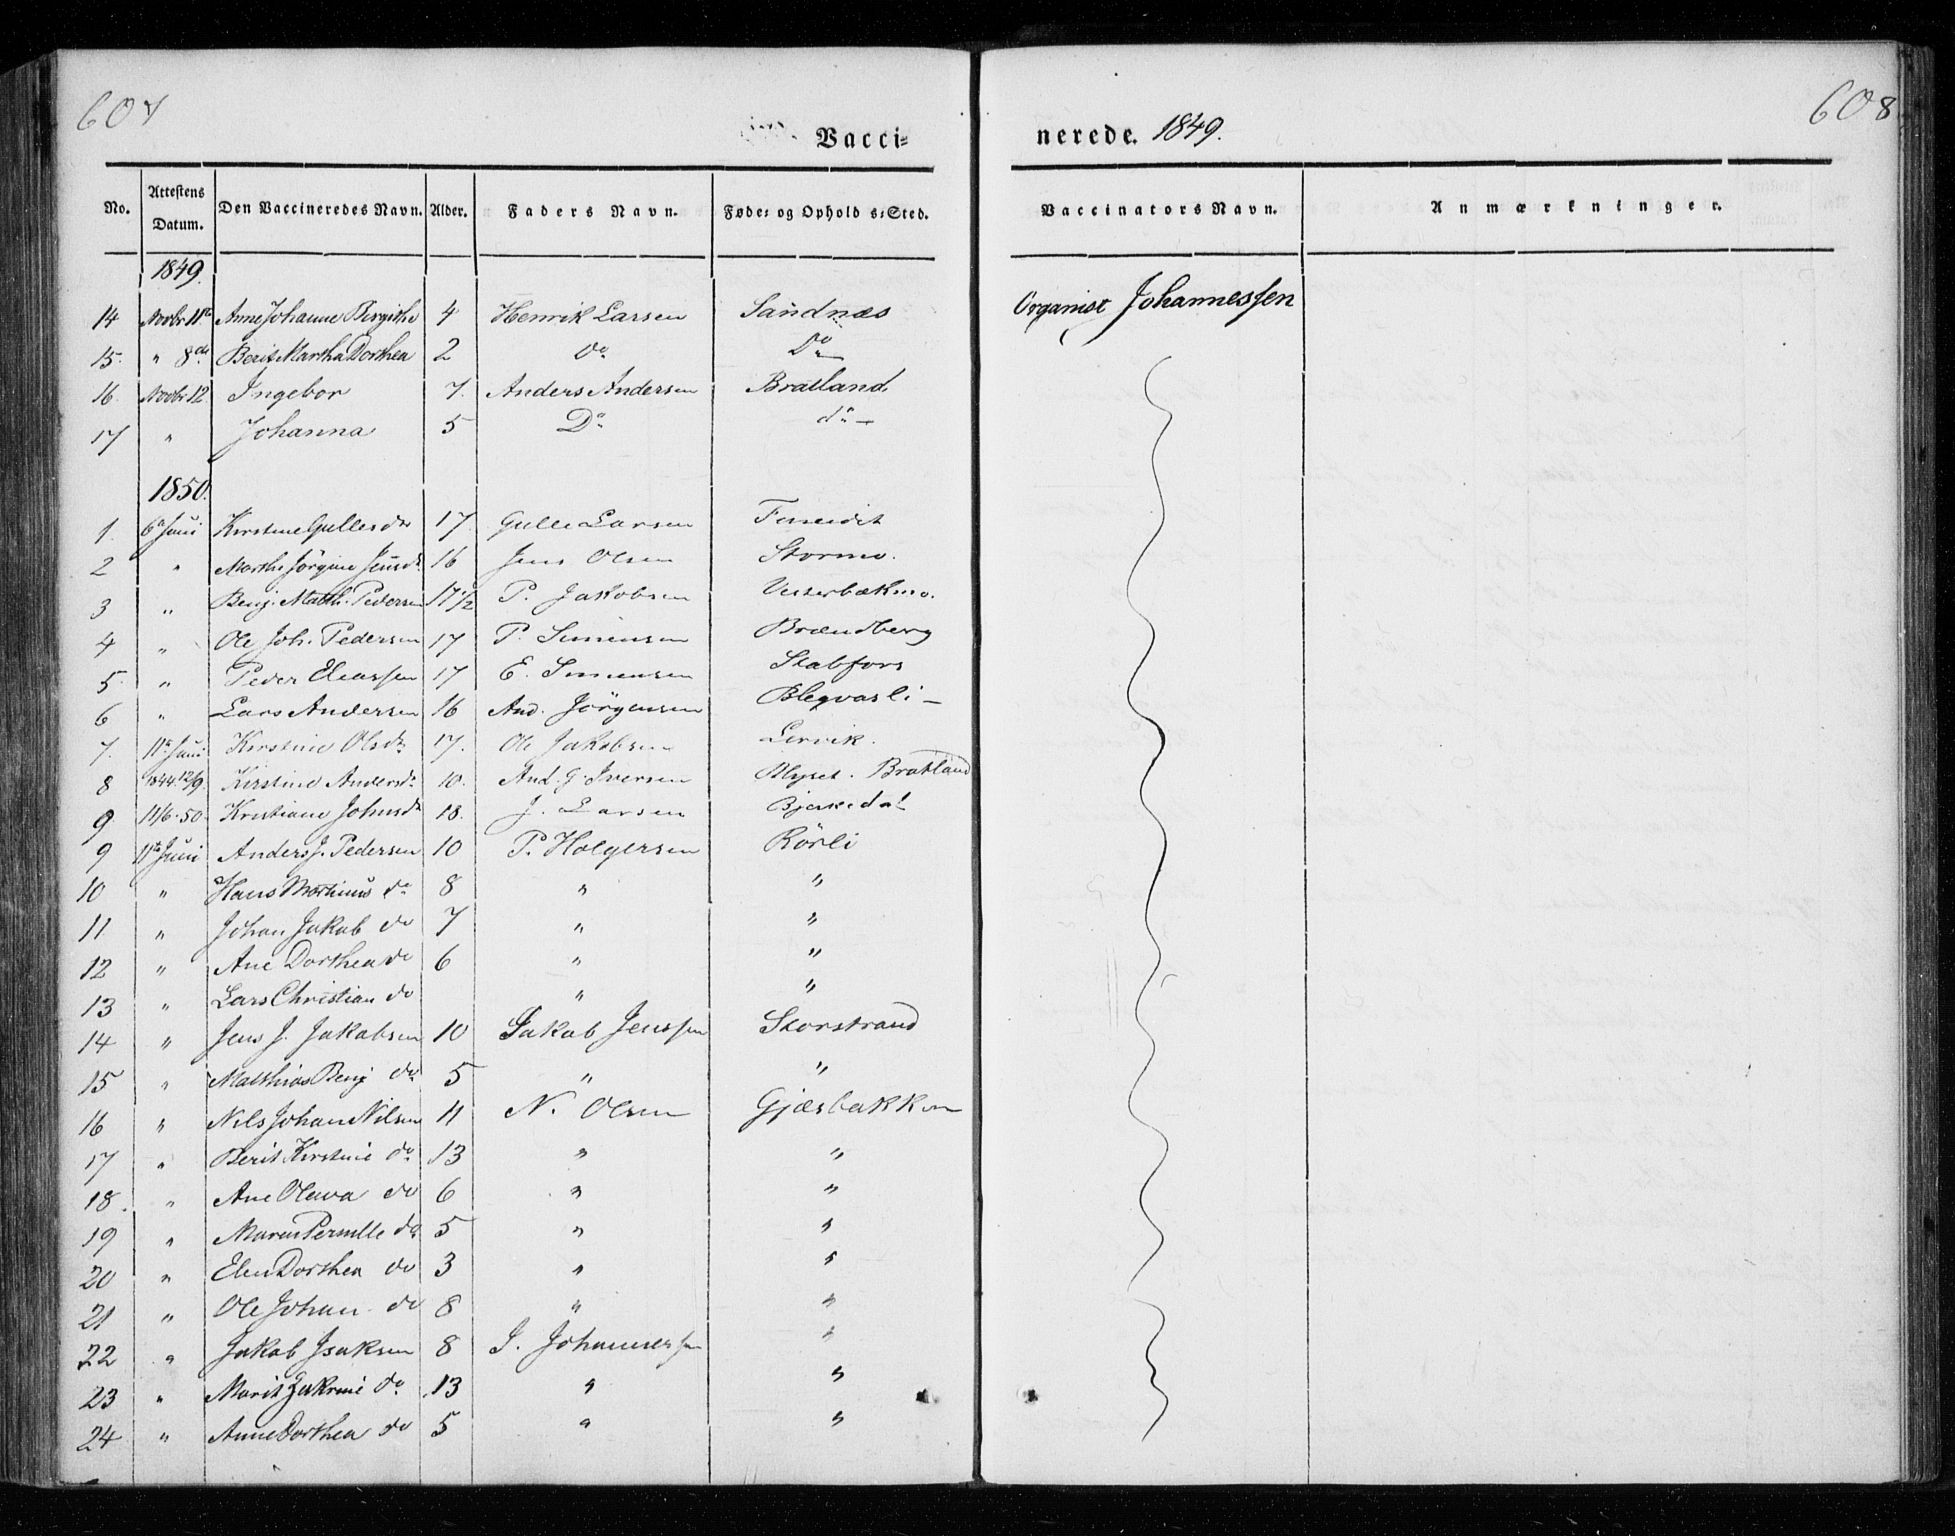 607
608
Vacci= nerede. 1849.
No. Attestens Datum. Den Vaccineredes Navn. Alder. Faders Navn. Føde= og Ophold s=Sted. Vaccinators Navn. Anmærkninger.
1849.
14 Novbr 11te Anne Johanne Birgithe 4 Henrik Larsen Sandnæs Organist Johannessen
15. " 8de Berit Martha Dorthea 2 do Do
16. Novbr 12 Ingebor 7. Anders Andersen Bratland
17 " Johanna 5 Do do
1850.
1. 6te Juni Kirstine Gullesdr 17. Gulle Larsen
2 " Marthe Jörgine Jensdr 16 Jens Olsen Stormo.
3 " Benj. Math. Pedersen 17 1/2 P. Jakobsen Vesterbækmo.
4 " Ole Joh. Pedersen 17 P. Simensen Brændberg
5. " Peder Eliassen 17 E. Simensen Stabfors
6 " Lars Andersen 16 And. Jörgensen Bleqvasli
7. 11te Juni Kirstine Olsdr 17. Ole Jakobsen Lervik.
8 1844 12/9 Kirstine Andersdr 10. And. G. Iversen Bratland
9. 11/6-50 Kristiane Johnsdr 18. J. Larsen Bjerkedal
9 11te Juni Anders J. Pedersen 10 P. Holgersen Rörli
10 " Hans Martinus do 8 " "
11 " Johan Jakob do 7 " "
12 " Ane Dorthea do 6 " "
13 " Lars Christian do " "
14 " Jens J. Jakobsen 10 Jakob Jenssen Storstrand
15 " Mathias Benj do 5 " "
16 " Nils Johan Nilsen 11 N. Olsen Gjæsbakken
17 " Berit Kirstine do 13 " "
18. " Ane Olava do 6 " "
19 " Maren Pernille do 5 " "
20 " Elen Dorthea do 3 " "
21 " Ole Johan do 8 " "
22 " Jakob Isaksen 8 I. Johannessen "
23 " Marit do 13 " "
24 " Anne Dorthea do 5 " "